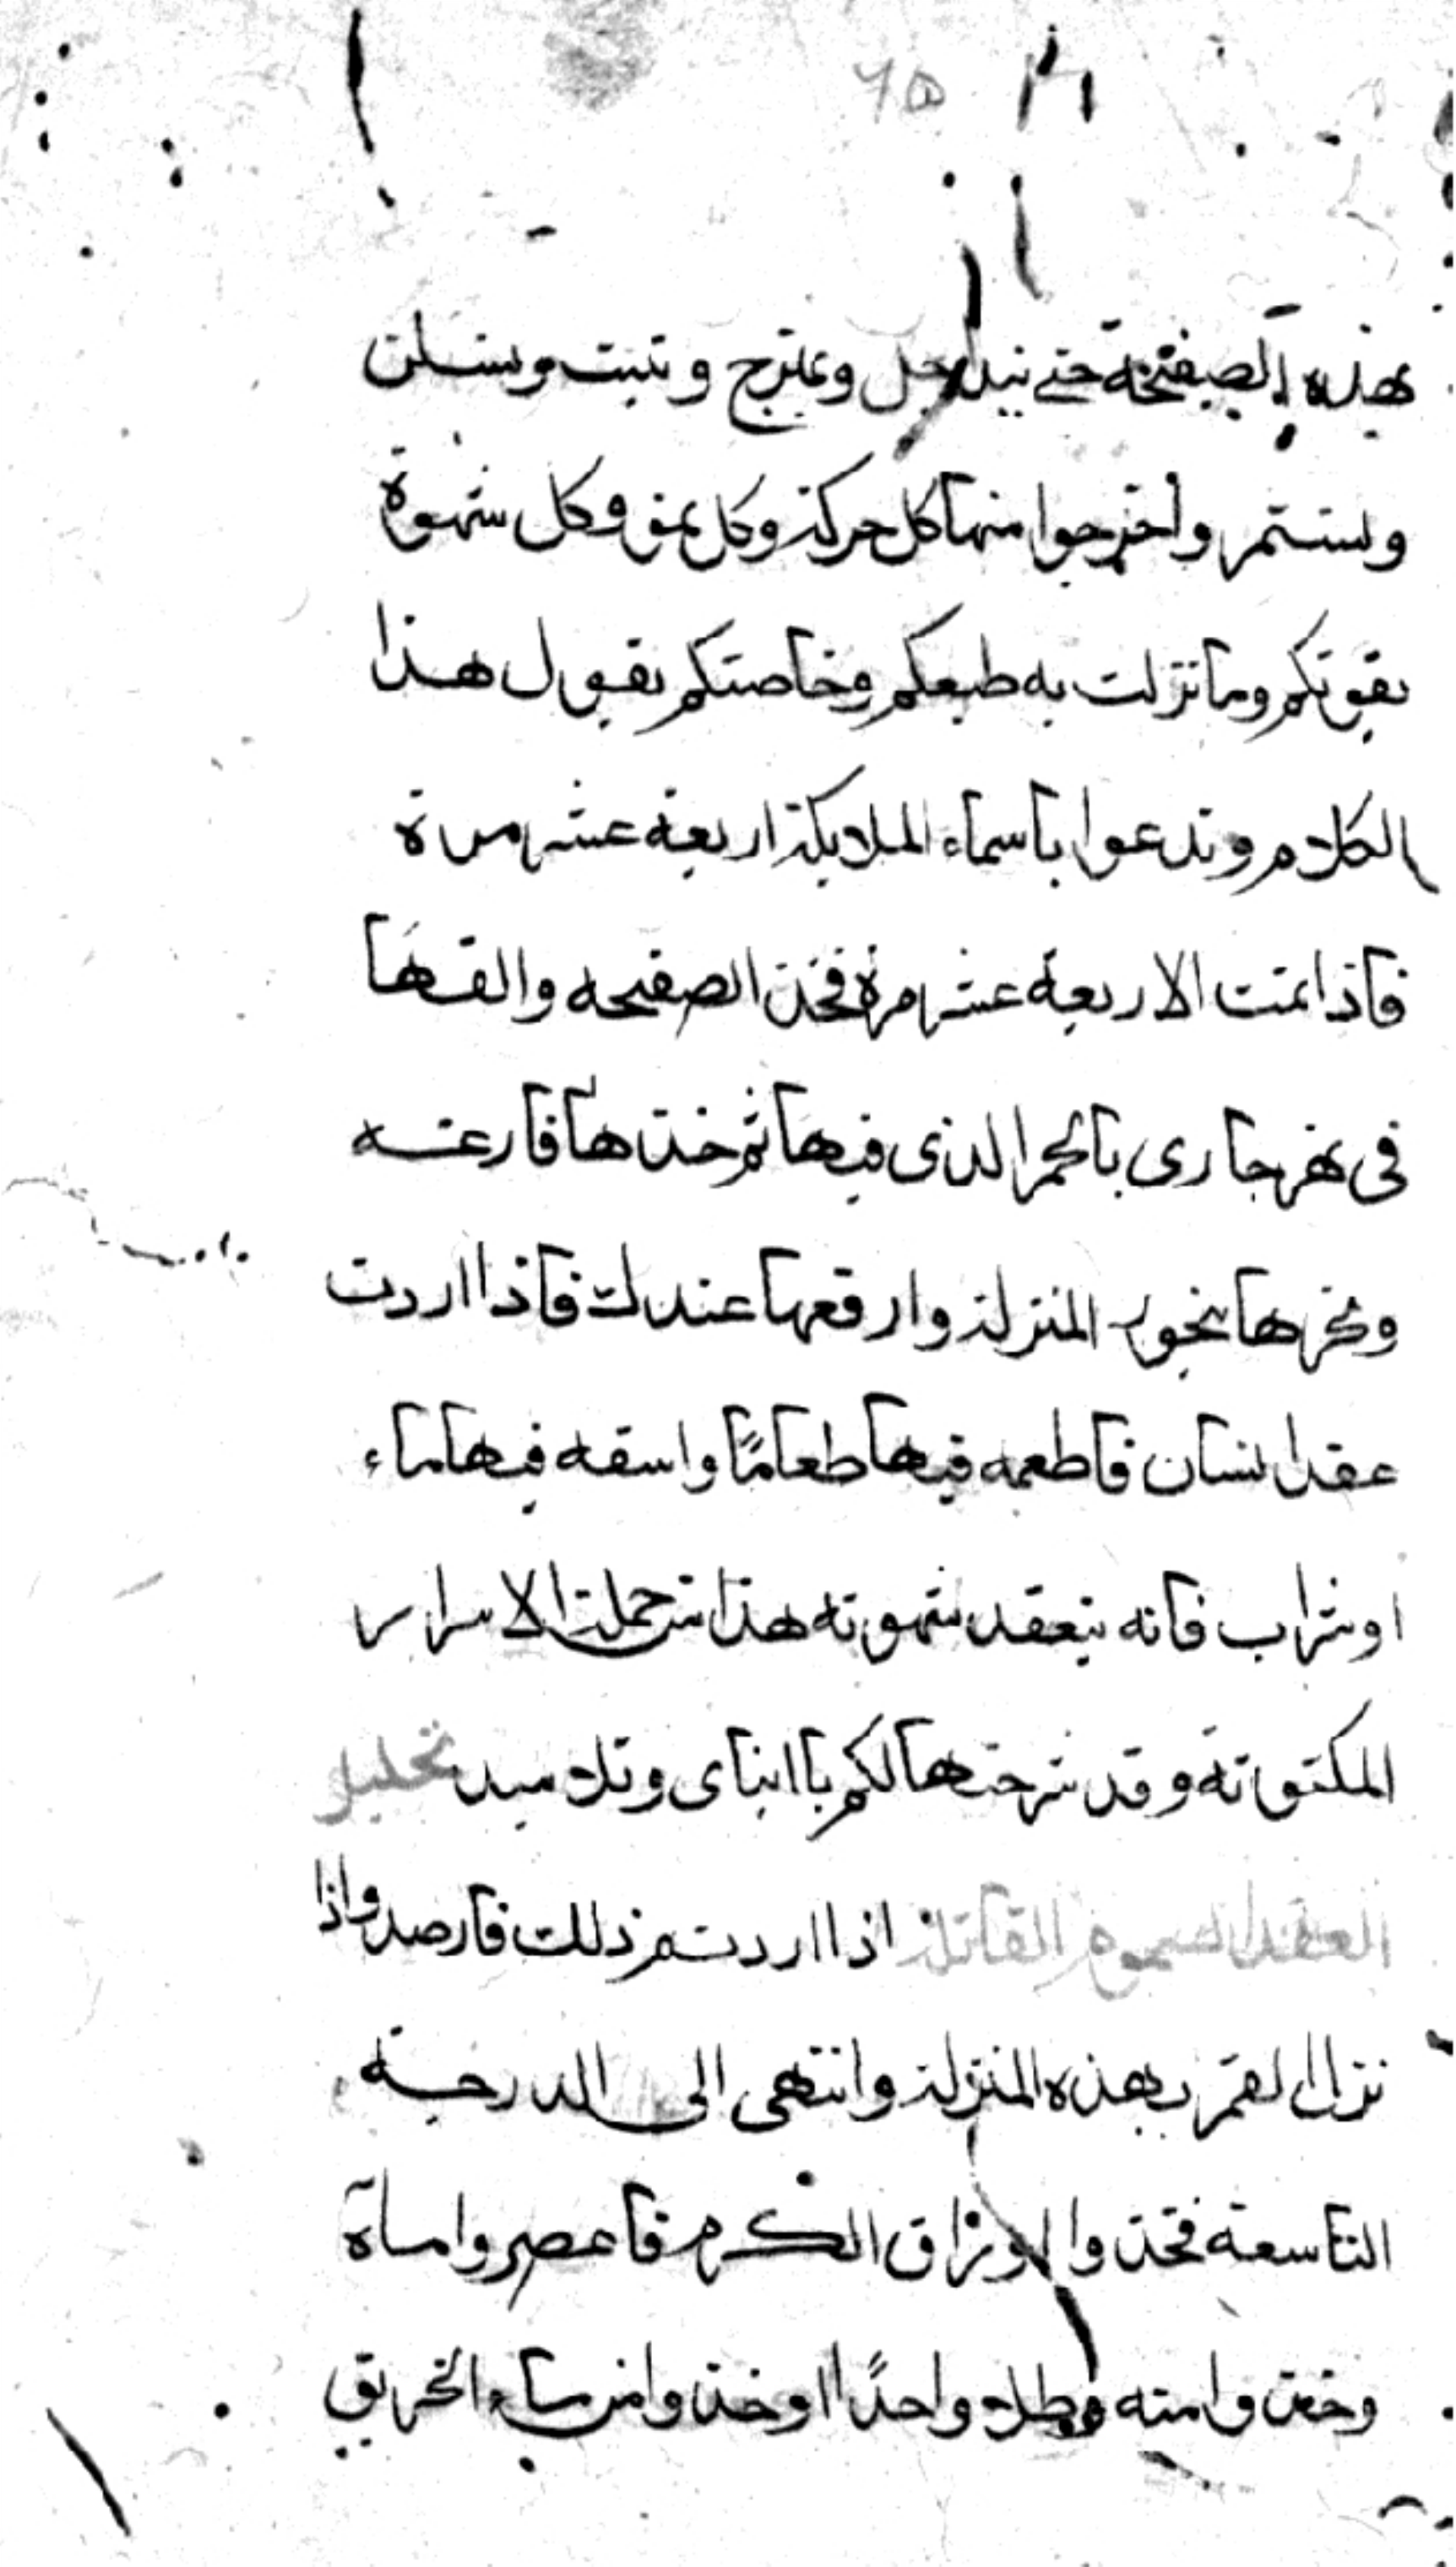 ٦٥
بهذه الصفيحة حتى يتداخل ويمتزج ويثبت ويسكن
ويستمر واخرجوا منها كل حركة وكل نمو وكل شهوة
بقوتكم وما نزلت به طبعكم وخاصتكم بقول هذا
الكلام وتدعوا باسماء الملايكة اربعة عشر مرة
فاذا تمت الاربعة عشر مرة فخذ الصفيحه والقها
في نهر جاري بالجمر الذي فيها ثم خذها فارغه
وبخرها ببخور المنزلة وارفعها عندك فاذا اردت
عقد انسان فاطعمه فيها طعامًا واسقه فيها ماء
او شراب فانه يتعقد شهوته هذا من جملة الاسرار
المكتوته وقد شرحتها لكم يا ابناى وتلاميد تحليل
العقد السموم القاتلة اذا اردتم ذلك فارصدوا اذا
نزل القمر بهذه المنزلة وانتهى الى الدرجة
التاسعة فخذوا اوراق الكرم فاعصروا ماءه
وخذوا منه رطلا واحدًا او خذوا من ماء الخريق